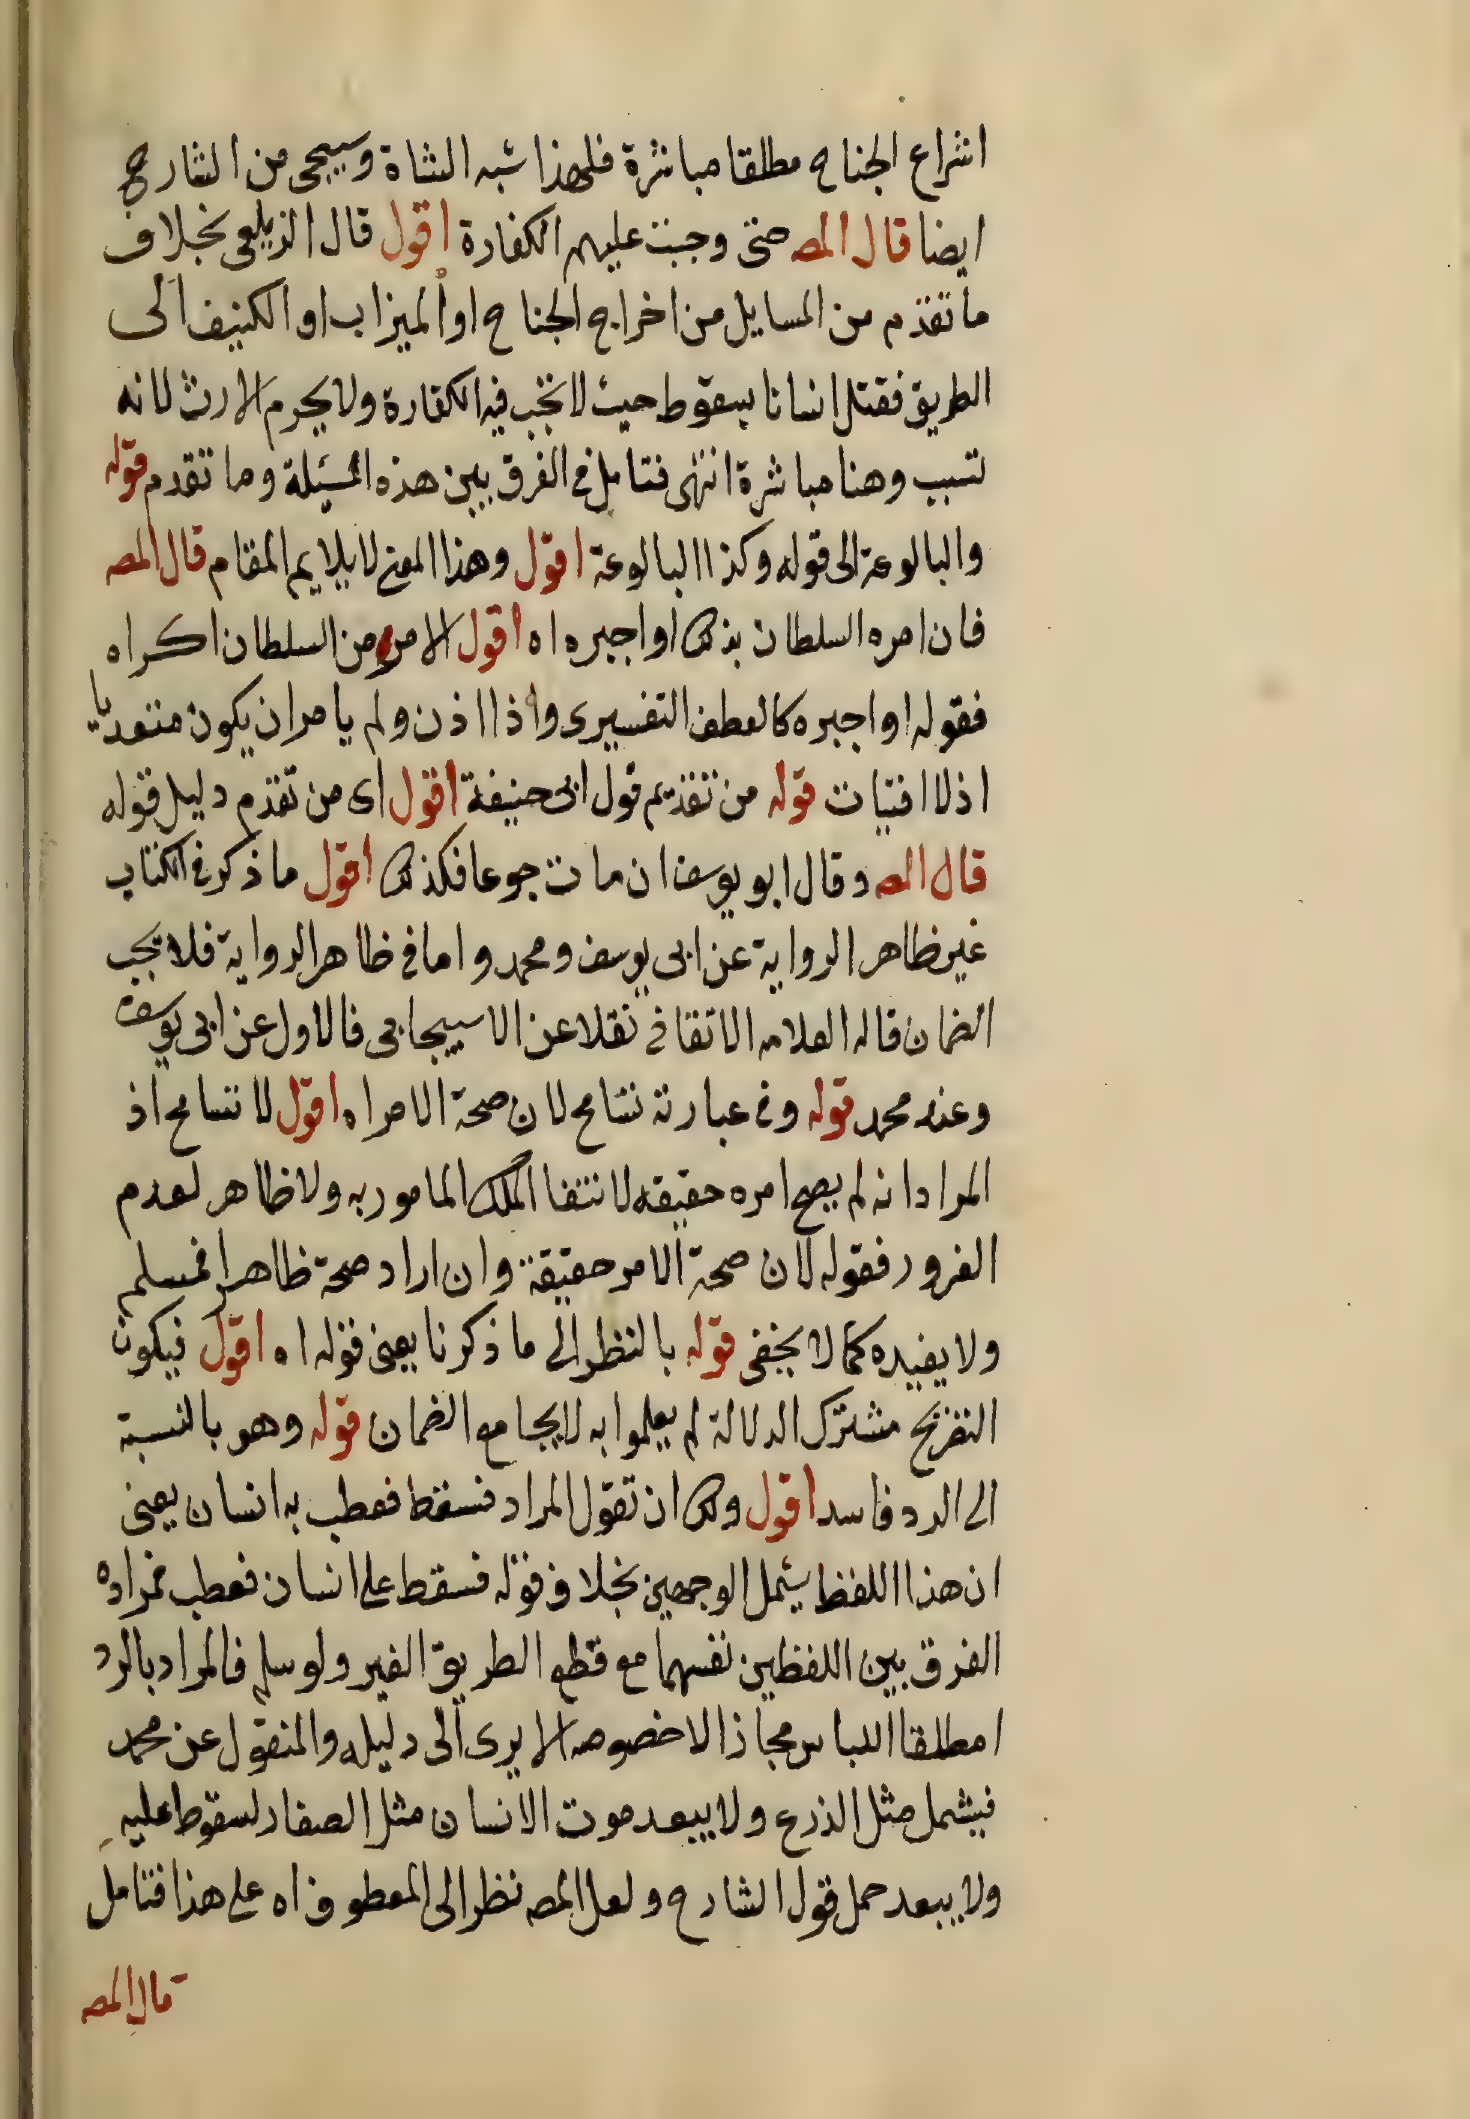 اشراع الجناح مطلقا مباشرة فلهذا شبه الشاة وسيجى من الشارح
ايضا قال المص حتى وجبت عليهم الكفارة اقول قال الزيلعى بخلاف
ما تقدم من المسايل من اخراج الجناح او الميزاب او الكنيف الى
الطريق فقتل انسانا بسقوط حيث لا تجب فيه الكفارة ولا يحرم الارث لانه
تسبب وهنا مباشرة انتهى فتامل فى الفرق بين هذه المسئلة وما تقدم قوله
والبالوعة الى قوله وكذا البالوعة اقول وهذا المعنى لا يلايم المقام قال المص
فان امره السلطان بذلك او اجبره اه اقول الامر من السلطان اكراه
فقوله او اجبره كالعطف التفسيرى واذا اذن ولم يامر ان يكون متعديا
اذ لا افتيات قوله من تقديم قول ابى حنيفة اقول اى من تقدم دليل قوله
قال المص وقال ابو يوسف ان مات جوعا فكذلك اقول ما ذكر فى الكتاب
غير ظاهر الرواية عن ابى يوسف ومحمد واما فى ظاهر الرواية فلا يجب
الضمان قاله العلامه الاتقانى نقلا عن الاسبيجابى فالاول عن ابى يوسف
وعنه محمد قوله وفى عبارته تسامح لان صحة الامر اه اقول لا تسامح اذ
المراد انه لم يصح امره حقيقه لانتفا الملك المامور به ولا ظاهر لعدم
الغرور فقوله لان صحة الامر حقيقة وان اراد صحة ظاهرا فمسلم
ولا يفيده كما لا يخفى قوله بالنظر الى ما ذكرنا يعنى قوله اه اقول فيكون
التفريح مشترك الدلالة لم يعلموا به لا يجامع الضمان قوله وهو بالنسبة
الى الرد فاسد اقول ولك ان تقول المراد فسقط فعطب به انسان يعنى
ان هذا اللفظ يشمل الوجهين بخلاف قوله فسقط على انسان فعطب فمراده
الفرق بين اللفظين نفسهما مع قطع الطريق الغير ولو سلم فالمراد بالرد
ا مطلقا اللباس مجاذا لا خصوصه الا يرى الى دليله والمنقول عن محمد
فيشمل مثل الدرع ولا يبعد موت الانسان مثل الصغار لسقوط عليه
ولا يبعد حمل قول الشارح ولعل المص نظر الى المعطوف اه على هذا فتامل
قال المص